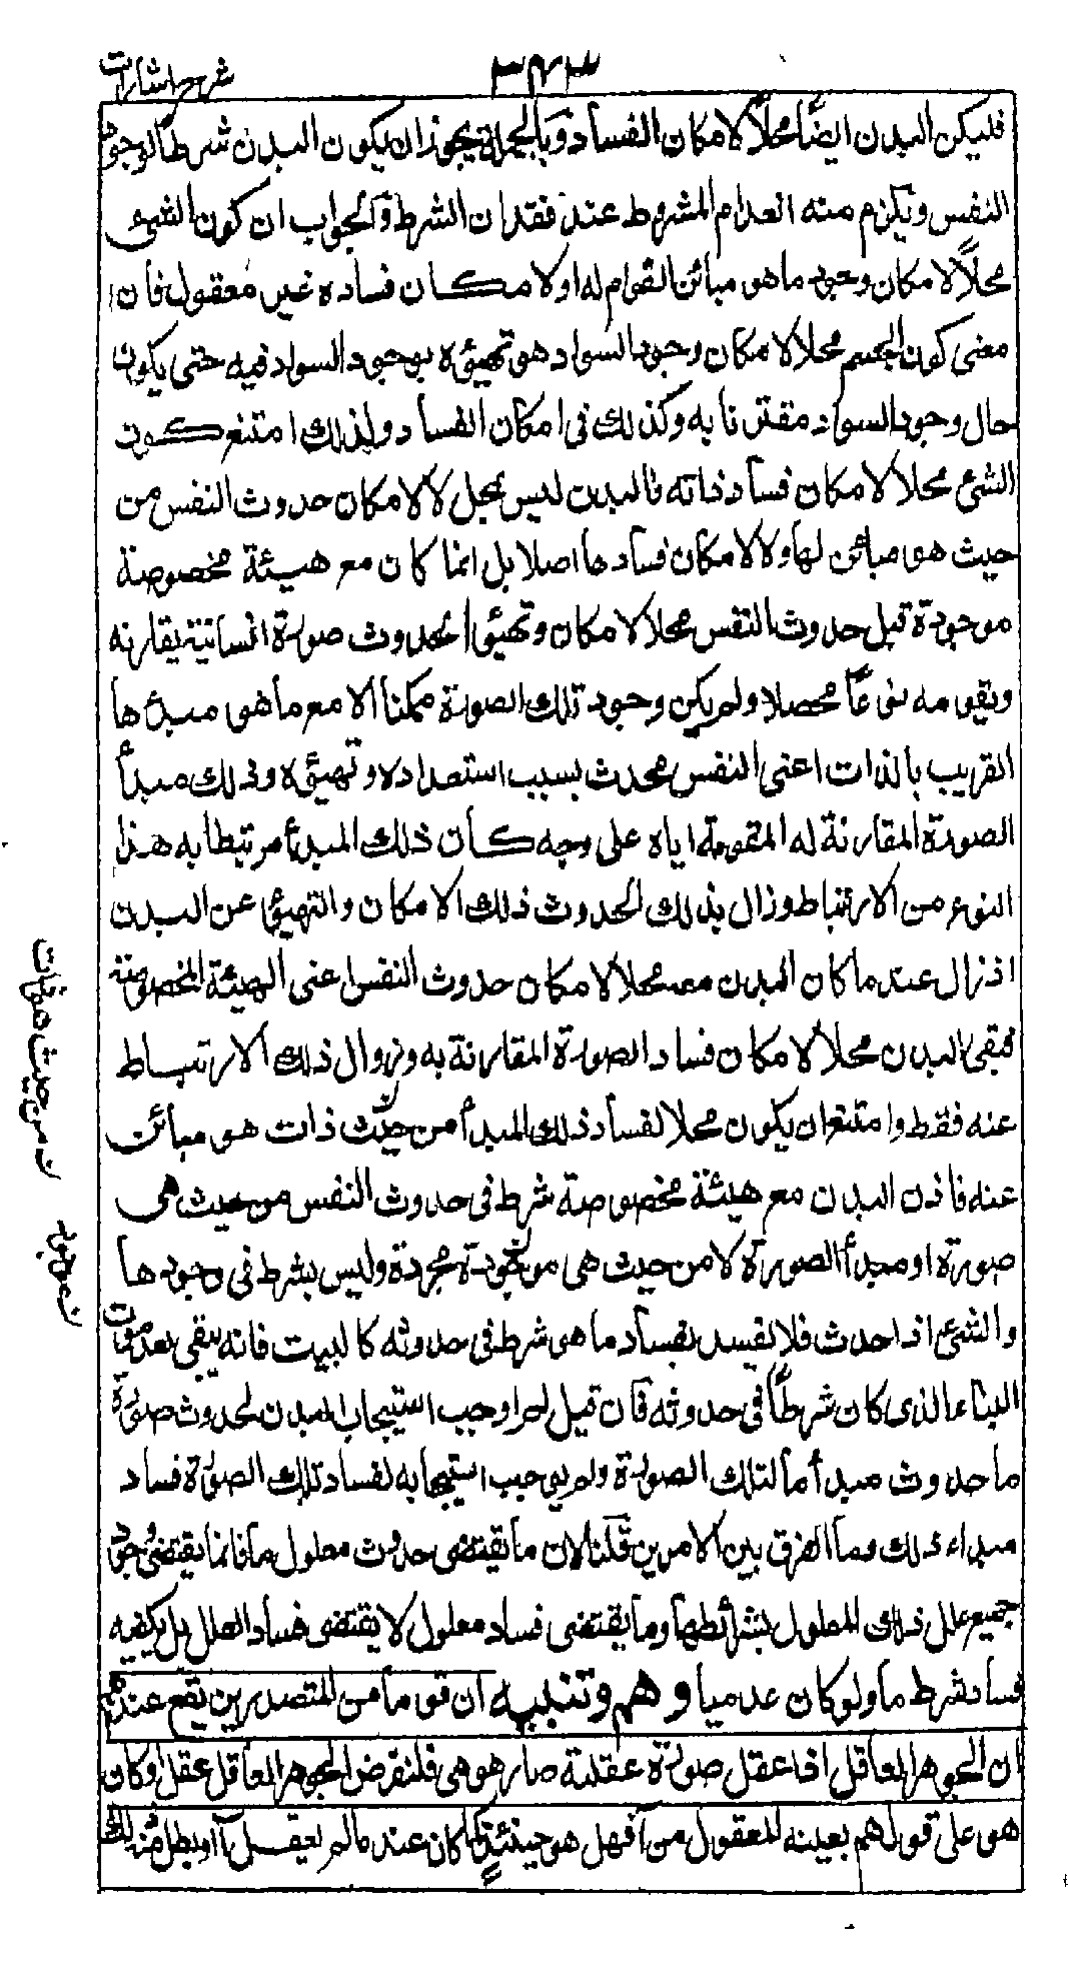 شرح اشارات
٣٤٣
فليكن البدن ايضاً محلاً لامكان الفساد وبالجملة يجوز ان يكون البدن شرطاً لوجود
النفس ويلزم منه انعدام المشروط عند فقدان الشرط والجواب ان كون الشئ
محلاً لامكان وجود ما هو مبائن القوام له او لامكان فساده غير معقول فان
معنى كون الجسم محلا لامكان وجود السواد هو تهيئوه لوجود السواد فيه حتى يكون
حال وجود السواد مقترنا به وكذلك فى امكان الفساد ولذلك امتنع كون
الشئ محلا لامكان فساد ذاته فالبدن ليس بمحل لامكان حدوث النفس من
حيث هو مبائن لها ولا لامكان فسادها اصلا بل انما كان مع هيئة مخصوصة
موجودة قبل حدوث النفس محلا لامكان وتهيئوا لحدوث صورة انسانية يقارنه
ويقومه نوعاً محصلا ولم يكن وجود تلك الصورة ممكنا الا مع ما هو مبدئها
القريب بالذات اعنى النفس محدث بسبب استعداده وتهيئوه وذلك مبدأ
الصورة المقارنة له المقومة اياه على وجه كان ذلك المبدأ مرتبطا به هذا
النوع من الارتباط وزال بذلك الحدوث ذلك الامكان والتهيؤ عن البدن
اذ زال عند ما كان البدن معه محلا لامكان حدوث النفس اعنى الهيئة المخصوصة
فبقى البدن محلاً لامكان فساد الصورة المقارنة به وزوال ذلك الارتباط
عنه فقط وامتنع ان يكون محلا لفساد ذلك المبدأ من حيث ذات هو مبائن
عنه فاذن البدن مع هيئة مخصوصة شرط فى حدوث النفس من حيث هى
صورة او مبدأ الصورة لا من حيث هى موجودة مجردة وليس بشرط فى وجودها
والشئ اذا حدث فلا يفسد بفساد ما هو شرط فى حدوثه كالبيت فانه يبقى بعد موت
البناء الذى كان شرطاً فى حدوثه فان قيل لم اوجب استيجاب البدن لحدوث صورة
ما حدوث مبدأ ما لتلك الصورة ولم يوجب استيجابه لفساد تلك الصورة فساد
مبداء ذلك وما الفرق بين الامرين قلنا لان ما يقتضى حدوث معلول ما فانما يقتضى وجود
جميع علل ذلك المعلول بشرائطها وما يقتضى فساد معلول لا يقتضى فساد العلل بل يكفيه
فساد شرط ما ولو كان عدميا وهم وتنبيه ان قوما من المتصدرين يقع عندهم
ان الجوهر العاقل اذا عقل صورة عقلية صار هو هى فلنفرض الجوهر العاقل عقل آ وكان
هو على قولهم بعينه المعقول من آ فهل هو حينئذ كما كان عند ما لم يعقل آ او بطل منه ذلك
ن من حيث هو ذات